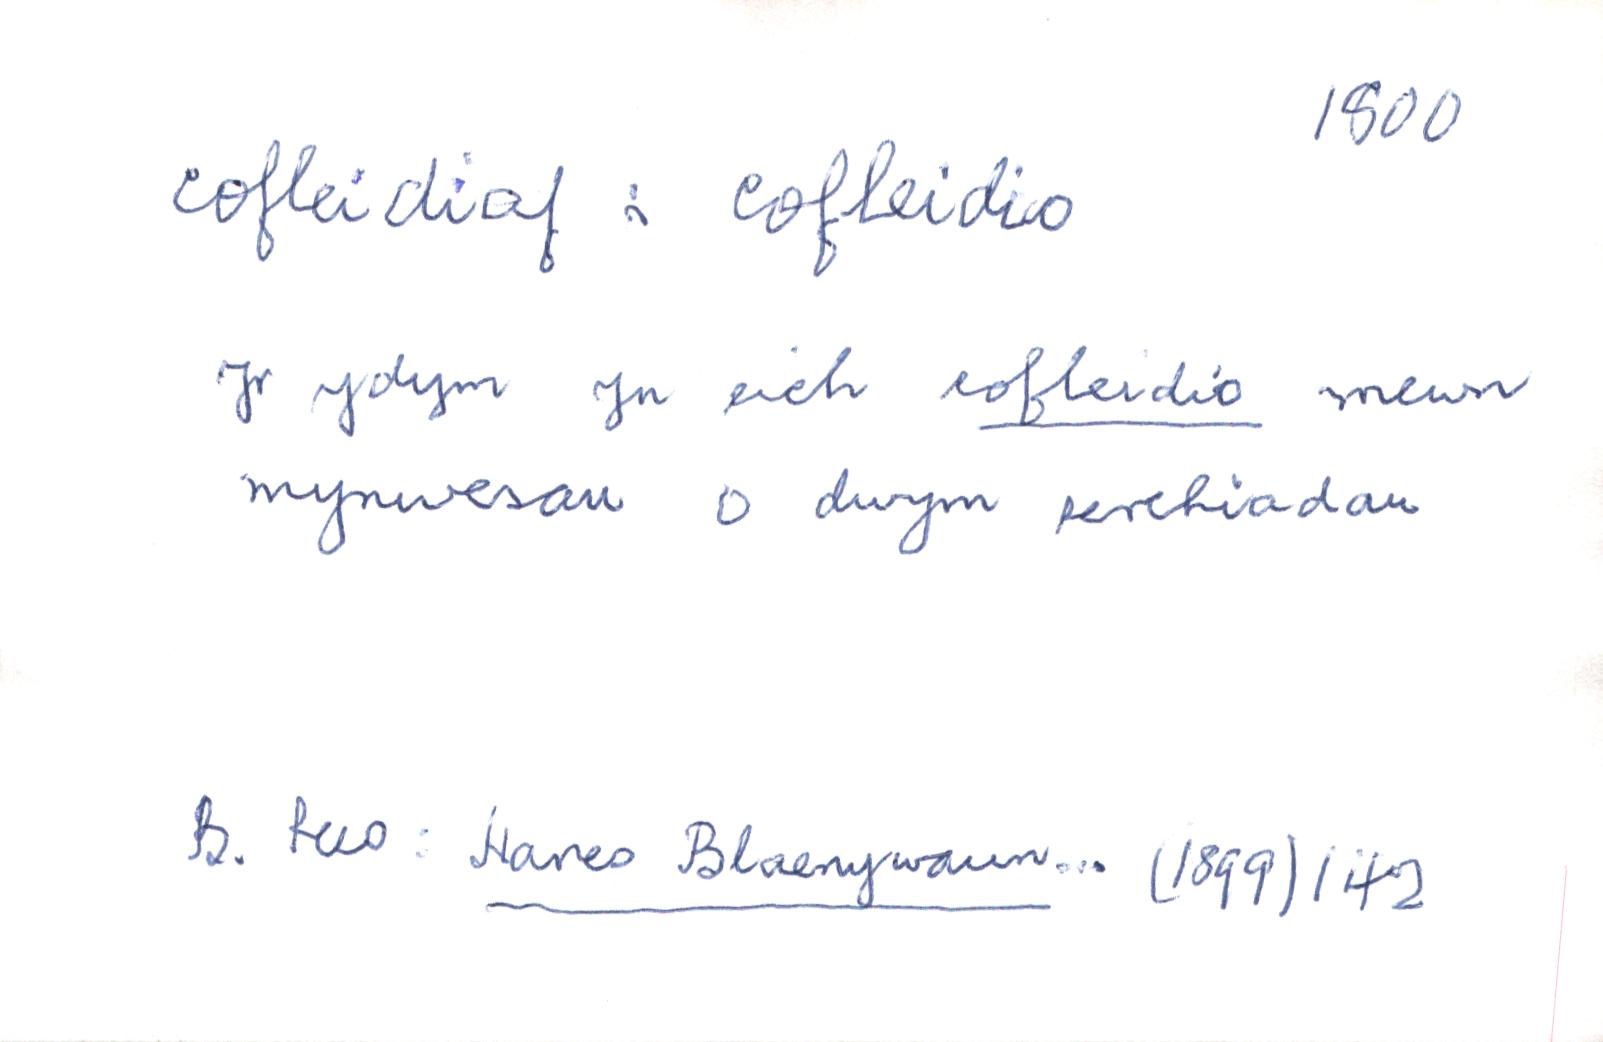 1800
cofleidiaf : cofleidio
Yr ydym yn eich cofleidio mewn
mynwesau o dwym serchiadau
B. Rees : Hanes Blaenywaun... (1899) 142